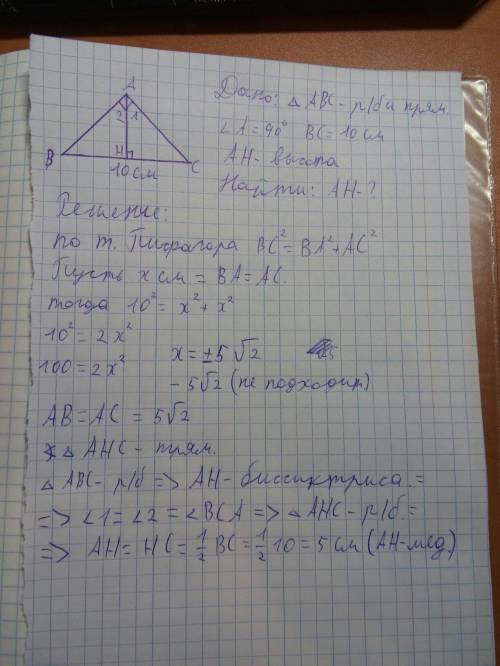 A
2 1
B H C
10 см
Дано: △ABC - р/б и прям.
∠A = 90° BC = 10 см
AH - высота
Найти: AH - ?
Решение:
по т. Пифагора BC² = BA² + AC²
Пусть x см = BA = AC.
тогда 10² = x² + x²
10² = 2x²
100 = 2x²
x = ±5√2
-5√2 (не подходит)
AB = AC = 5√2
△ AHC - прям.
△ABC - р/б => AH - биссиктриса =
=> ∠1 = ∠2 = ∠BCA => △AHC - р/б =
=> AH = HC = 1/2 BC = 1/2 10 = 5 см (AH - мед)